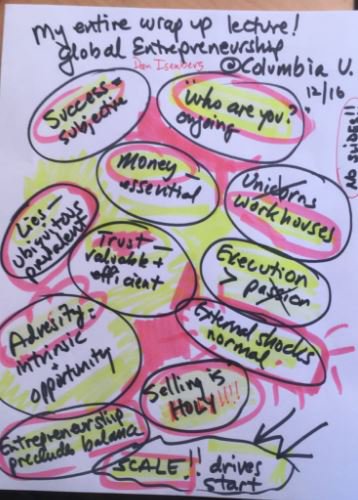 My entire wrap up lecture!
Global Entrepreneurship
Dan Isenberg
@Columbia U.
12/16
No slides!!
Success =
subjective
"Who are you?"
ongoing
Money —
essential
Unicorns
workhouses
Lies —
ubiquitous
prevalent
Trust —
valuable +
efficient
Execution
> passion
Adversity =
intrinsic
+
opportunity
External shocks
normal
Selling is
HOLY!!!!
Entrepreneurship
precludes balance
SCALE!! drives
start